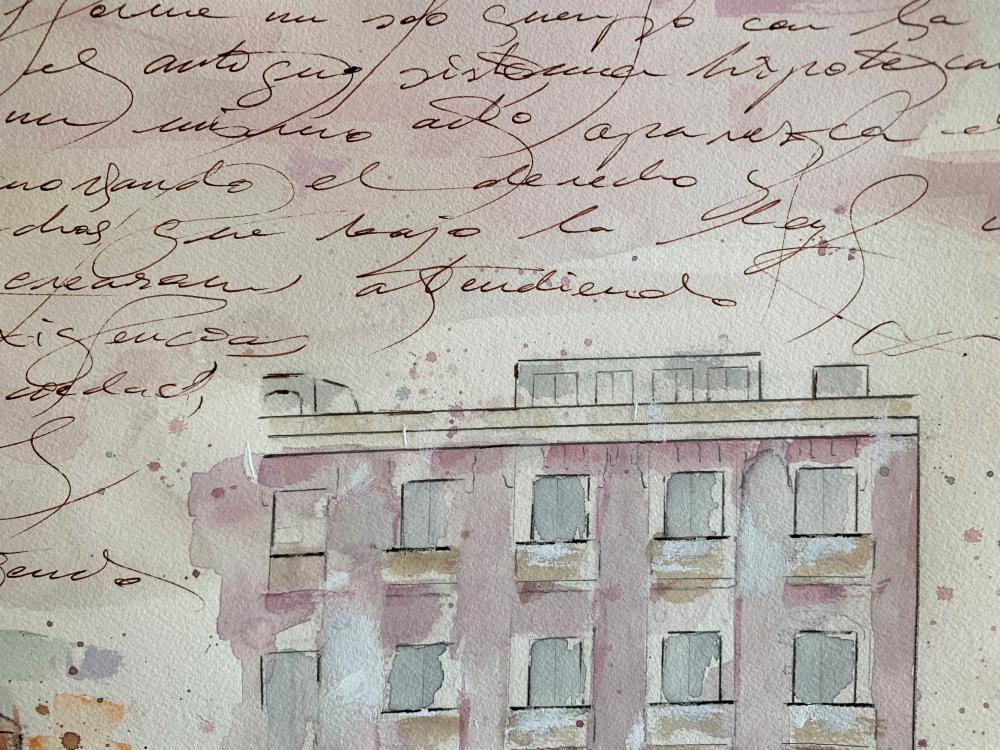 forme un solo cuerpo con la
el antiguo sistema hipotecar
un mismo acto aparezca e
el derecho y
que bajo la Ley
crearan atendiendo
xigencias
edad,